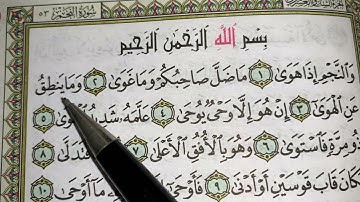 سُورَةُ النَّجْمِ ٥٣
بِسْمِ اللَّهِ الرَّحْمَٰنِ الرَّحِيمِ
وَالنَّجْمِ إِذَا هَوَىٰ ١ مَا ضَلَّ صَاحِبُكُمْ وَمَا غَوَىٰ ٢ وَمَا يَنطِقُ
عَنِ الْهَوَىٰ ٣ إِنْ هُوَ إِلَّا وَحْيٌ يُوحَىٰ ٤ عَلَّمَهُ شَدِيدُ ٥
ذُو مِرَّةٍ فَاسْتَوَىٰ ٦ وَهُوَ بِالْأُفُقِ الْأَعْلَىٰ ٧ فَتَدَلَّىٰ ٨
فَكَانَ قَابَ قَوْسَيْنِ أَوْ أَدْنَىٰ ٩ فَأَوْحَىٰ مَا أَوْحَىٰ ١٠